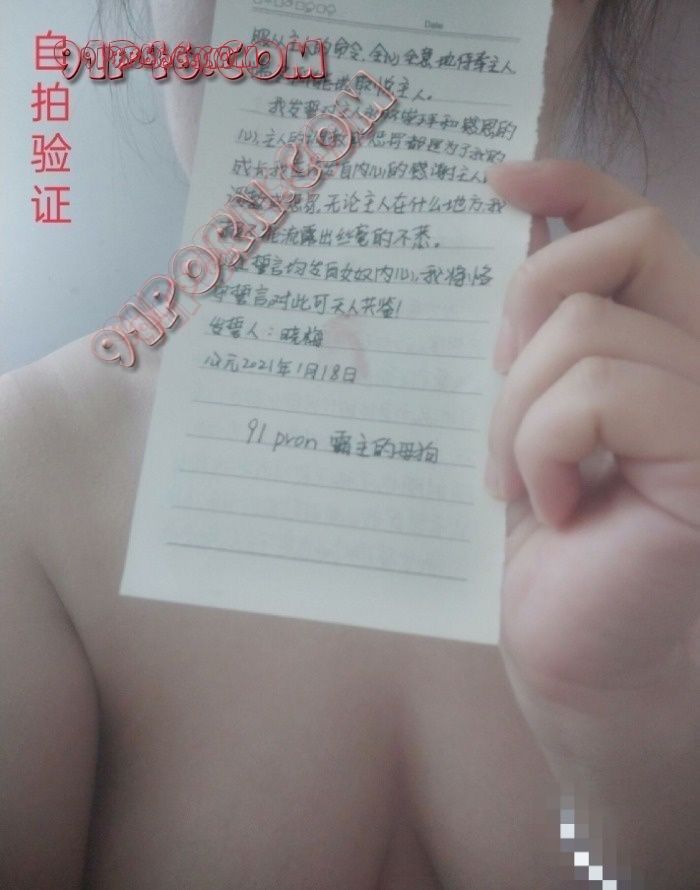 自拍验证
91P46.COM
91PORN.COM
Date
服从主人的命令,全心全意地侍奉主人
主。
我发誓对主人
心,主人的调教或惩罚都是为了我的
成长我
内心的感谢主人
调教或惩罚,无论主人在什么地方,我
流露出丝毫的不悉。
誓言均发自女奴内心,我将恪
守誓言,对此可天人共鉴!
发誓人:晓梅
公元2021年1月18日
91 pron 霸主的母狗